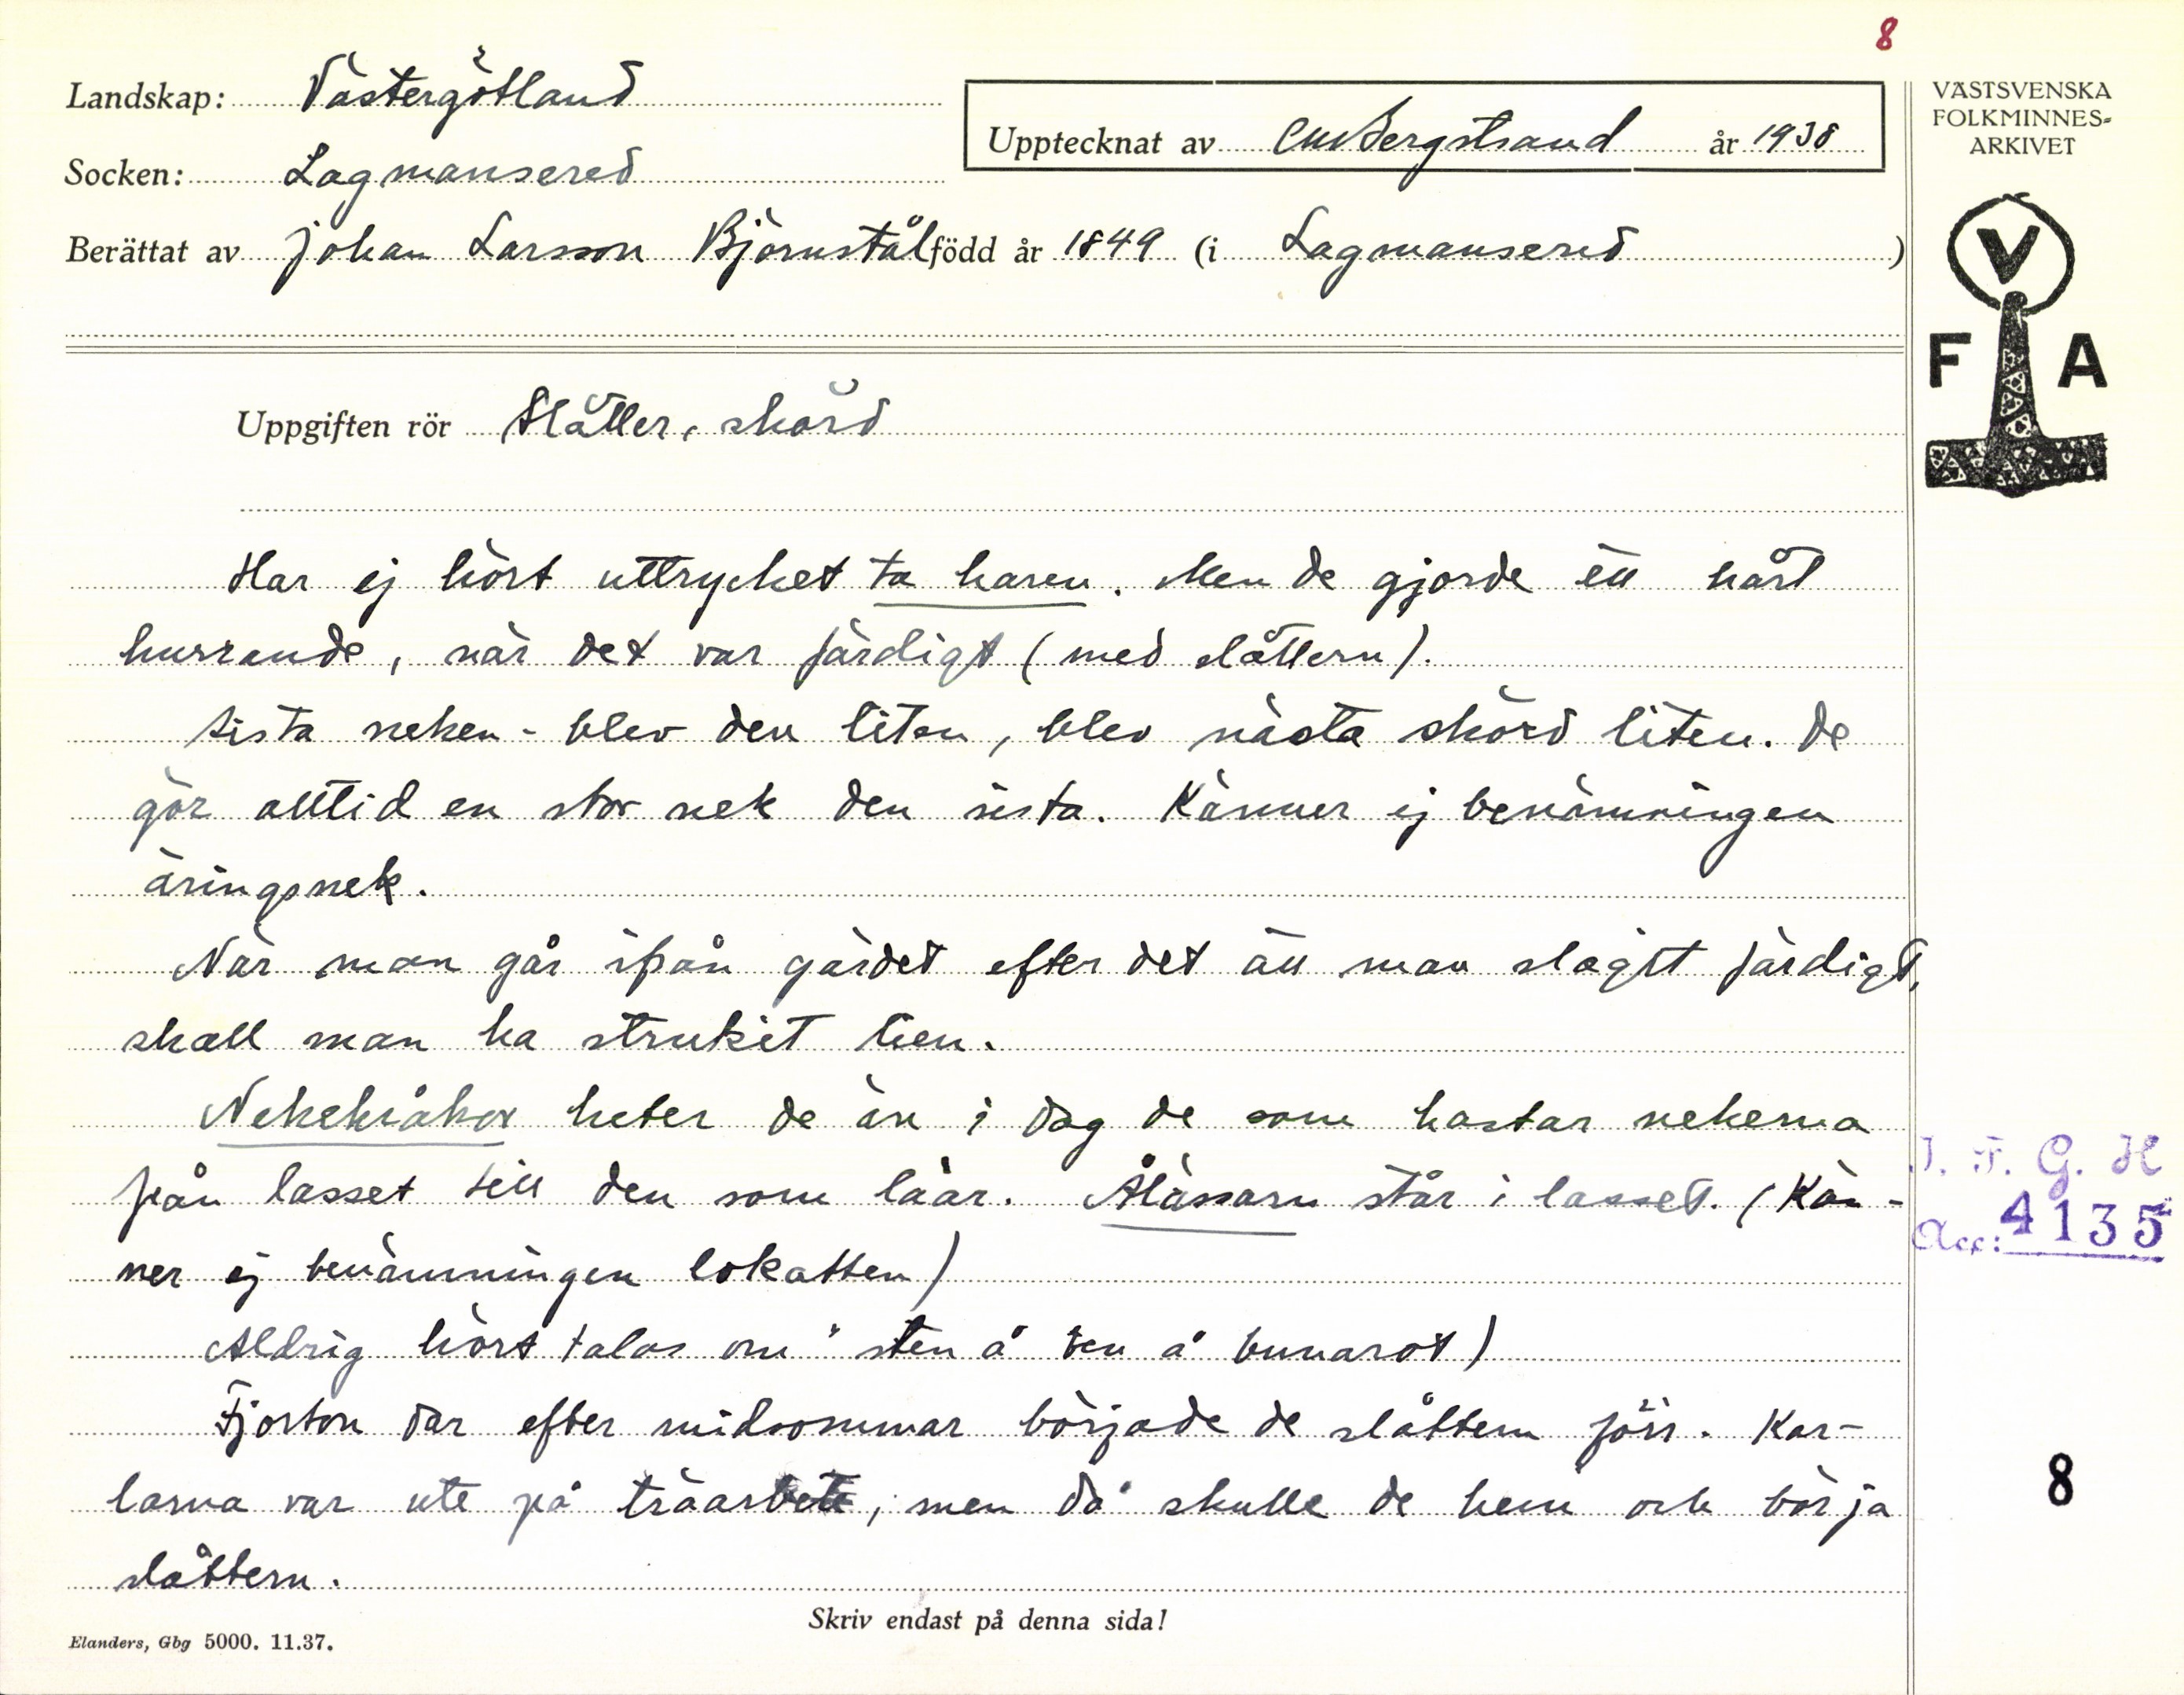 8
Landskap: Västergötland
Upptecknat av CM Bergstrand år 1938
VÄSTSVENSKA
FOLKMINNES-
ARKIVET
Socken: Lagmansered
Berättat av Johan Larsson Björnstål född år 1849 (i Lagmansered)
V
F A
Uppgiften rör Slåtter, skörd
Har ej hört uttrycket ta haren. Men de gjorde ett hårt
hurrande, när det var färdigt (med slåttern).
Sista neken - blev den liten, blev nästa skörd liten. De
gör alltid en stor nek den sista. Känner ej benämningen
äringsnek.
När man går ifrån gärdet efter det att man slagit färdigt,
skall man ha strukit lien.
Nekekråkor heter de än i dag de som kastar nekerna
från lasset till den som läär. Ålässarn står i lasset. (Kän-
ner ej benämningen lokatten)
Aldrig hört talas om "sten å ben å bunarot)
Fjorton dar efter midsommar började de slåttern förr. Kar-
larna var ute på träarbete, men då skulle de hem och börja
slåttern.
I. F. G. H
Acc: 4135
8
Skriv endast på denna sida!
Elanders, Gbg 5000. 11.37.